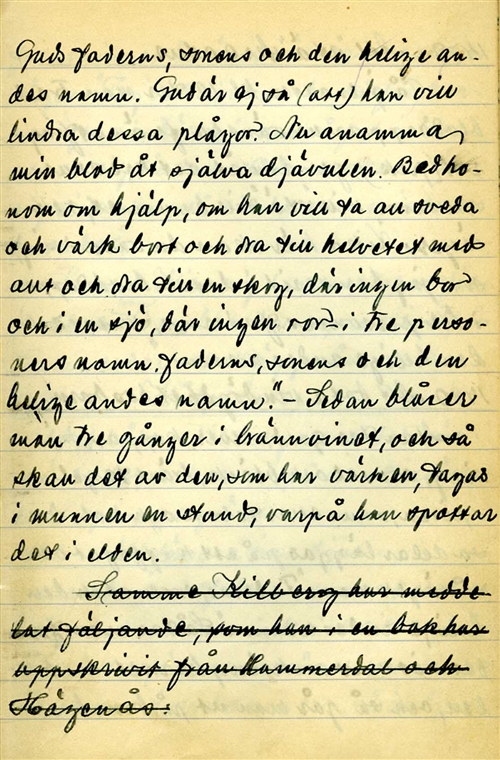 Guds faderns, sonens och den helige an-
des namn. Gud är ej så (att) han vill
lindra dessa plågor. Nu anamma
min blod åt själva djävulen. Bed ho-
nom om hjälp, om han vill ta all sveda
och värk bort och dra till helvetet med
allt och dra till en skog, där ingen bor
och i en sjö, där ingen ror – i tre perso-
ners namn, faderns, sonens och den
helige andes namn." – Sedan blåser
man tre gånger i brännvinet, och så
skall det av den, som har värken, tagas
i munnen en stund, varpå han spottar
det i elden.
Samme Kilberg har medde-
lat följande, som han i en bok har
uppskrivit från Hammerdal och
Hägenås: